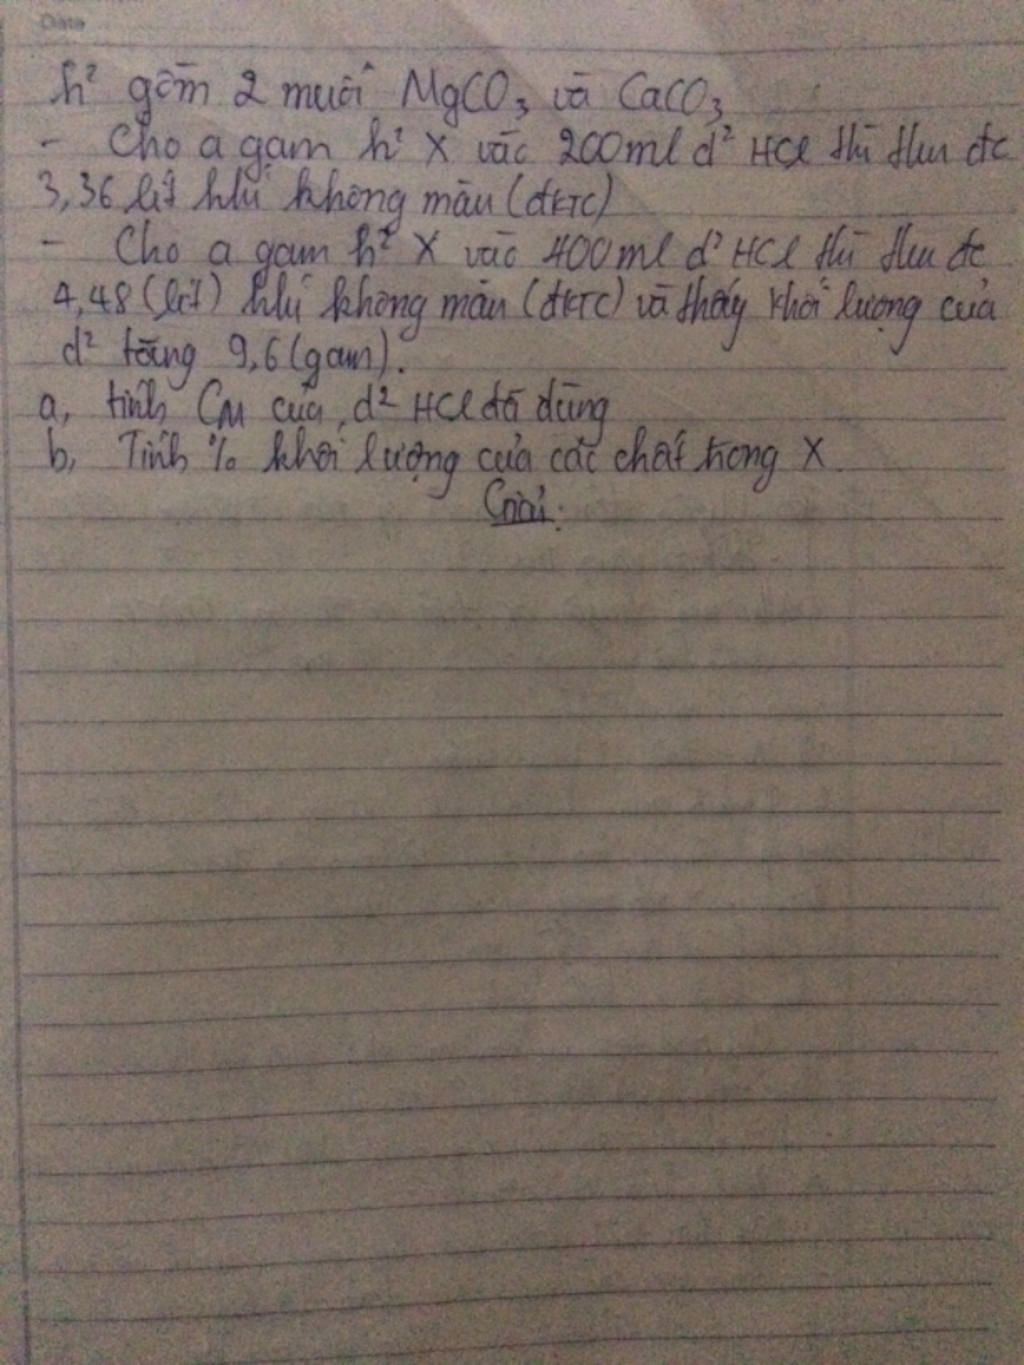 Date
h² gồm 2 muối MgCO₃ và CaCO₃
- Cho a gam h² X vào 200ml d² HCl thì thu đc
3,36 lít khí không màu (đKTC)
- Cho a gam h² X vào 400ml d² HCl thì thu đc
4,48 (lít) khí không màu (đKTC) và thấy khối lượng của
d² tăng 9,6 (gam).
a, tính CM của d² HCl đã dùng
b, Tính % khối lượng của các chất trong X
Giải: